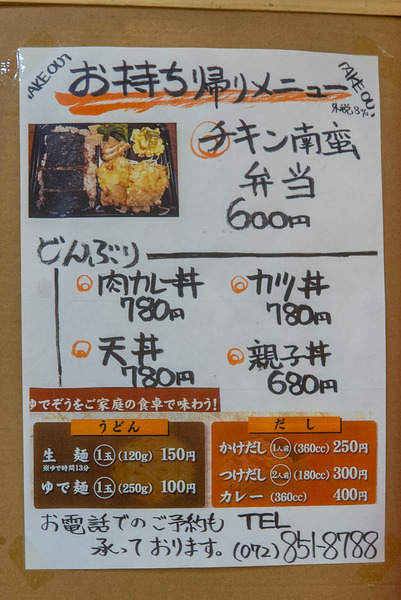 TAKE OUT
お持ち帰りメニュー
TAKE OUT
外税8%
チキン南蛮
弁当
600円
どんぶり
肉カレー丼
780円
カツ丼
780円
天丼
780円
親子丼
680円
ゆでぞうをご家庭の食卓で味わう!
うどん
生麺 1玉 (120g) 150円
※ゆで時間13分
ゆで麺 1玉 (250g) 100円
だし
かけだし 1人前 (360cc) 250円
つけだし 2人前 (180cc) 300円
カレー (360cc) 400円
お電話でのご予約も TEL
承っております。(072)851-8788